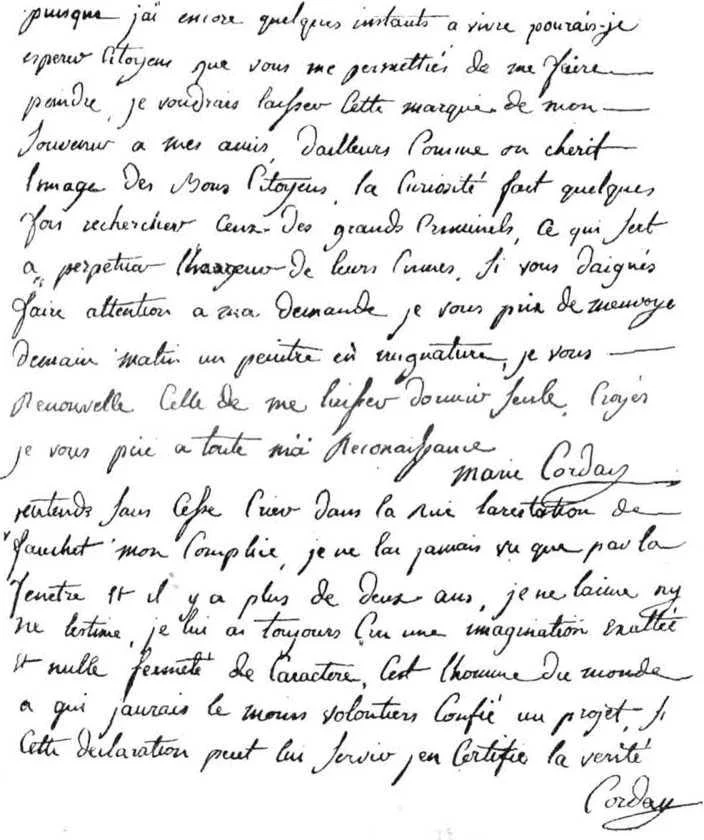 puisque jai encore quelques instants a vivre pourais-je
esperer Citoyens que vous me permettiés de me faire
peindre, je voudrais laisser Cette marque de mon
souvenir a mes amis, Dailleurs Comme on cherit
limage Des Bons Citoyens, la Curiosité fait quelques
fois rechercher Ceux Des grands Criminels, Ce qui sert
a perpetuer lhorreur de leurs Crimes, si vous daignés
faire attention a ma demande je vous prie de menvoyer
Demain matin un peintre en mignature, je vous
Renouvelle Celle de me laisser dormir seule, Croyés
je vous prie a toute ma Reconaissance
Marie Corday
jentends sans Cesse Crier dans la Rue larestation de
fauchet mon Complice, je ne lai jamais vu que par la
fenetre et il y a plus de deux ans, je ne laime ny
ne lestime, je lui ai toujours Cru une imagination Exaltée
et nulle fermeté de Caractere, Cest lhomme du monde
a qui jaurais le moins volontiers Confié un projet, si
Cette declaration peut lui servir jen Certifie la verité
Corday